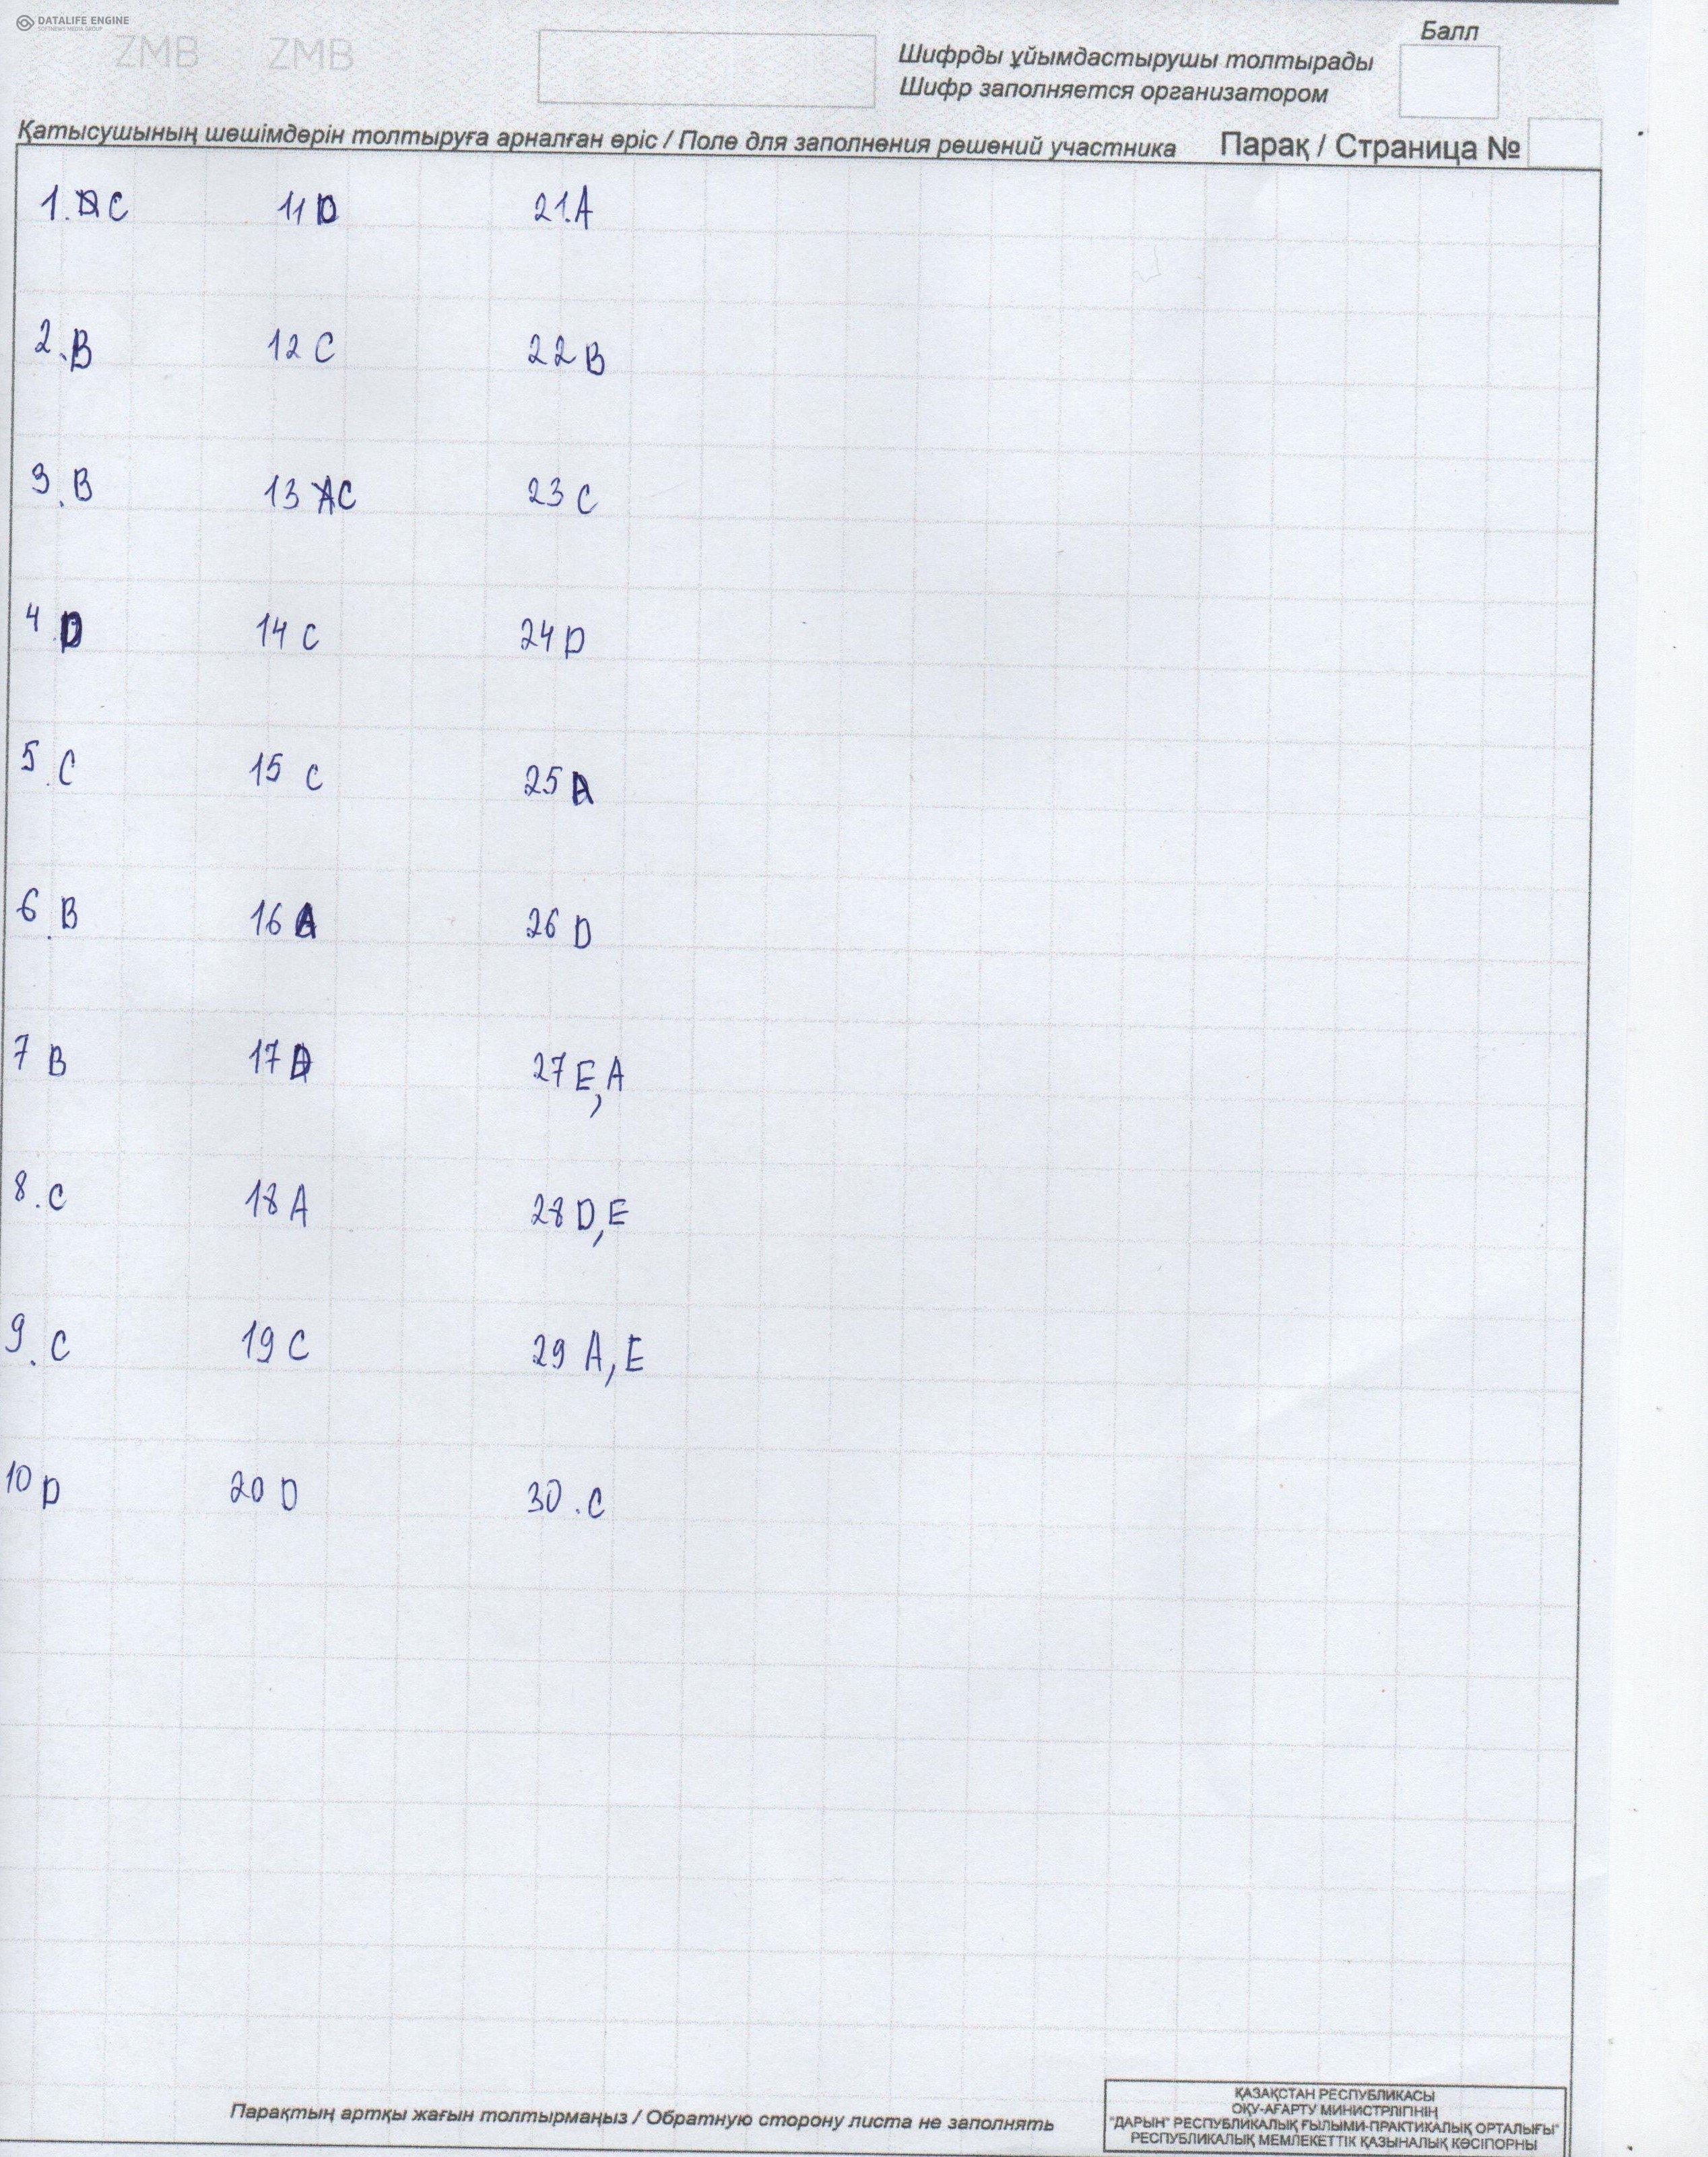 DATALIFE ENGINE
SOFTNEWS MEDIA GROUP
ZMB ZMB
Балл
Шифрды ұйымдастырушы толтырады
Шифр заполняется организатором
Қатысушының шешімдерін толтыруға арналған өріс / Поле для заполнения решений участника Парақ / Страница №
1. C 11 D 21. A
2. B 12 C 22 B
3. B 13 C 23 C
4 D 14 C 24 D
5. C 15 C 25
6. B 16 A 26 D
7 B 17 27 E, A
8. C 18 A 28 D, E
9. C 19 C 29 A, E
10 D 20 D 30. C
Парақтың артқы жағын толтырмаңыз / Обратную сторону листа не заполнять
ҚАЗАҚСТАН РЕСПУБЛИКАСЫ
ОҚУ-АҒАРТУ МИНИСТРЛІГІНІҢ
"ДАРЫН" РЕСПУБЛИКАЛЫҚ ҒЫЛЫМИ-ПРАКТИКАЛЫҚ ОРТАЛЫҒЫ"
РЕСПУБЛИКАЛЫҚ МЕМЛЕКЕТТІК ҚАЗЫНАЛЫҚ КӘСІПОРНЫ